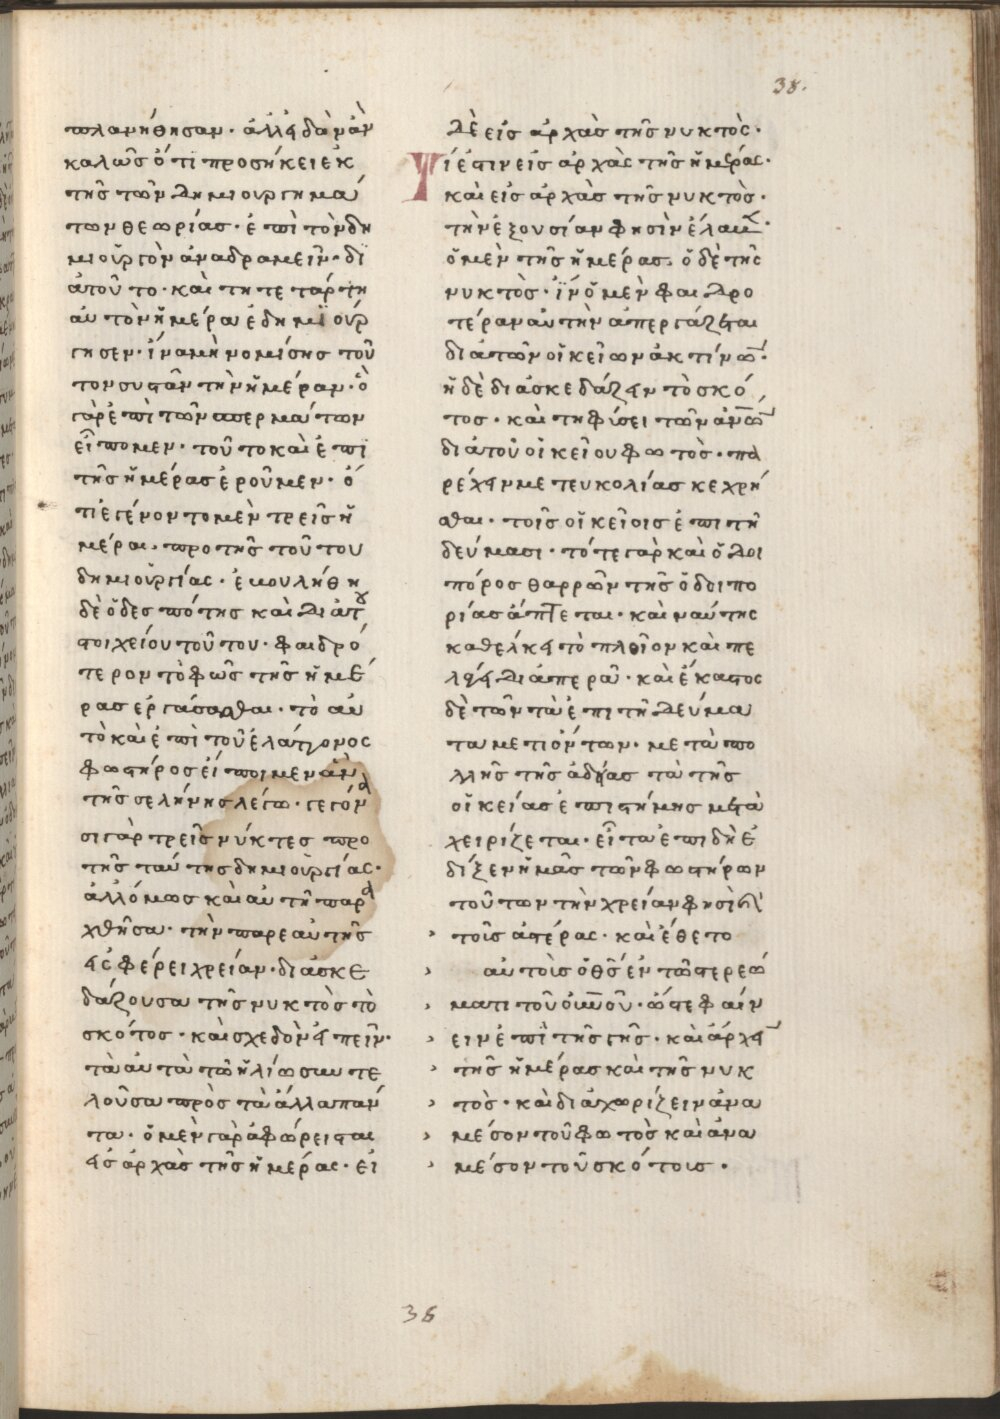 38.
πλανήθησαν· ἀλλ εἰδὼς ἂν
καλῶς ὅτι προσήκει ἐκ
τῆς τῶν δημιουργημά
των θεωρίας· ἐπὶ τὸν δη
μιουργὸν ἀναδραμεῖν· δι
ατοῦτο· καὶ τη τετάρτη
αὐτὸν ἡμέρα ἐδημιούρ
γησεν· ἵνα μὴ νομίσης τοῦ
τον συστᾶν τὴν ἡμέραν· ὃ
γὰρ ἐπὶ τῶν σπερμάτων
εἴπομεν· τοῦτο καὶ ἐπὶ
τῆς ἡμέρας ἐροῦμεν· ὅ
τι ἐγένοντο μὲν τρεῖς ἡ
μέραι· προ τῆς τούτου
δημιουργίας· ἐβουλήθη
δὲ ὁ δεσπότης καὶ διὰ τοῦ
στοιχείου τούτου· φαιδρό
τερον τὸ φῶς τῆς ἡμέ
ρας ἐργάσασθαι· τὸ αυ
τὸ καὶ ἐπὶ τοῦ ἐλάττονος
φωστῆρος εἴποιμεν ἂν·
τῆς σελήνης λέγω· γεγόνα
σι γὰρ τρεῖς νύκτες προ
τῆς ταύτης δημιουργίας·
ἀλλ ὅμως καὶ αὐτὴ παρα
χθῆσα· τὴν παρεαυτῆς
εἰσφέρει χρείαν· διασκε
δάζουσα τῆς νυκτὸς τὸ
σκότος· καὶ σχεδὸν εἰπεῖν·
τὰ αυτὰ τῶ ἡλίω συντε
λοῦσα πρὸς τὰ ἄλλα πάν
τα· ὁ μὲν γὰρ ἀφώρεισται
εἰς ἀρχὰς τῆς ἡμέρας· εἱ
δὲ εἰς ἀρχὰς τῆς νυκτὸς·
Τί ἐστιν εἰς ἀρχὰς τῆς ἡμέρας·
καὶ εἰς ἀρχὰς τῆς νυκτὸς·
τὴν ἐξουσίαν φησὶν ἔλαβεν·
ὁ μὲν τῆς ἡμέρας· ὁ δὲ τῆς
νυκτὸς· ἵν ὁ μὲν φαιδρο
τέραν αὐτὴν ἀπεργάζεται
διὰ τῶν οἰκείων ἀκτίνων·
ἡ δὲ διασκεδάζειν τὸ σκό
τος· καὶ τη φύσει τῶν ἀνων
διὰ τοῦ οἰκείου φωτὸς· πα
ρέχειν μετευκολίας κεχρή
σθαι· τοῖς οἰκείοις ἐπιτη
δεύμασι· τότε γὰρ καὶ ὁδοι
πόρος θαρρῶν τῆς ὁδοιπο
ρίας ἅπτεται· καὶ ναύτης
καθέλκει τὸ πλοῖον καὶ πε
λάγει διαπερᾶ· καὶ ἕκαστος
δὲ τῶν τὰ ἐπιτηδεύμα
τα μετιόντων· μετὰ πο
λλῆς τῆς ἀδείας τὰ τῆς
οἰκείας ἐπιστήμης μετὰ
χειρίζεται· εἶτα ἐπιδὴ ἔ
διξεν ἡμᾶς τῶν φωστήρων
τούτων τὴν χρείαν φησὶ καὶ
τοῖς ἀστέρας· καὶ ἔθετο
αὐτοὶς ὁ θς ἐν τῶ στερεώ
ματι τοῦ οὐνοῦ· ὥστε φαίν
ειν ἐπὶ τῆς γῆς· καὶ ἄρχειν
τῆς ἡμέρας καὶ τῆς νυκ
τὸς· καὶ διαχωρίζειν ἀνα
μέσον τοῦ φωτὸς καὶ ἀνα
μέσον τοῦ σκότοις·
38